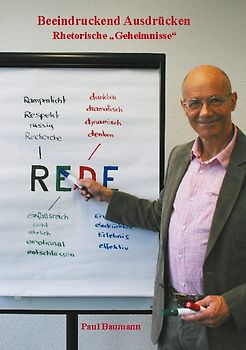 Beeindruckend Ausdrücken
Rhetorische „Geheimnisse“
Rampenlicht
Respekt
rassig
Recherche
dankbar
dramatisch
dynamisch
denken
REDE
einfallsreich
echt
ehrlich
emotional
entschlossen
Erlebnis
effektiv
Paul Baumann